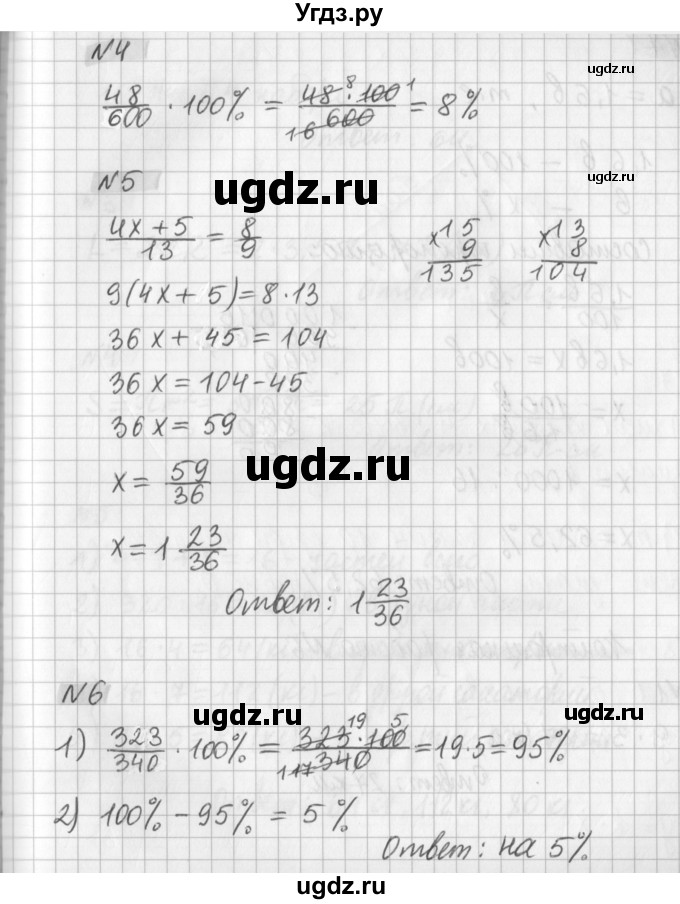 Угдз.ру
№4
48/600 · 100% = 48 · 100/600 = 8%
ugdz.ru
ugdz.ru
№5
ugdz.ru
ugdz.ru
4x + 5/13 = 8/9
×15 9 135
×13 8 104
9(4x + 5) = 8 · 13
36x + 45 = 104
ugdz.ru
36x = 104 - 45
36x = 59
ugdz.ru
x = 59/36
x = 1 23/36
ugdz.ru
Ответ: 1 23/36
№6
ugdz.ru
ugdz.ru
1) 323/340 · 100% = 323 · 100/340 = 19 · 5 = 95%
2) 100% - 95% = 5%
Ответ: на 5%
ugdz.ru